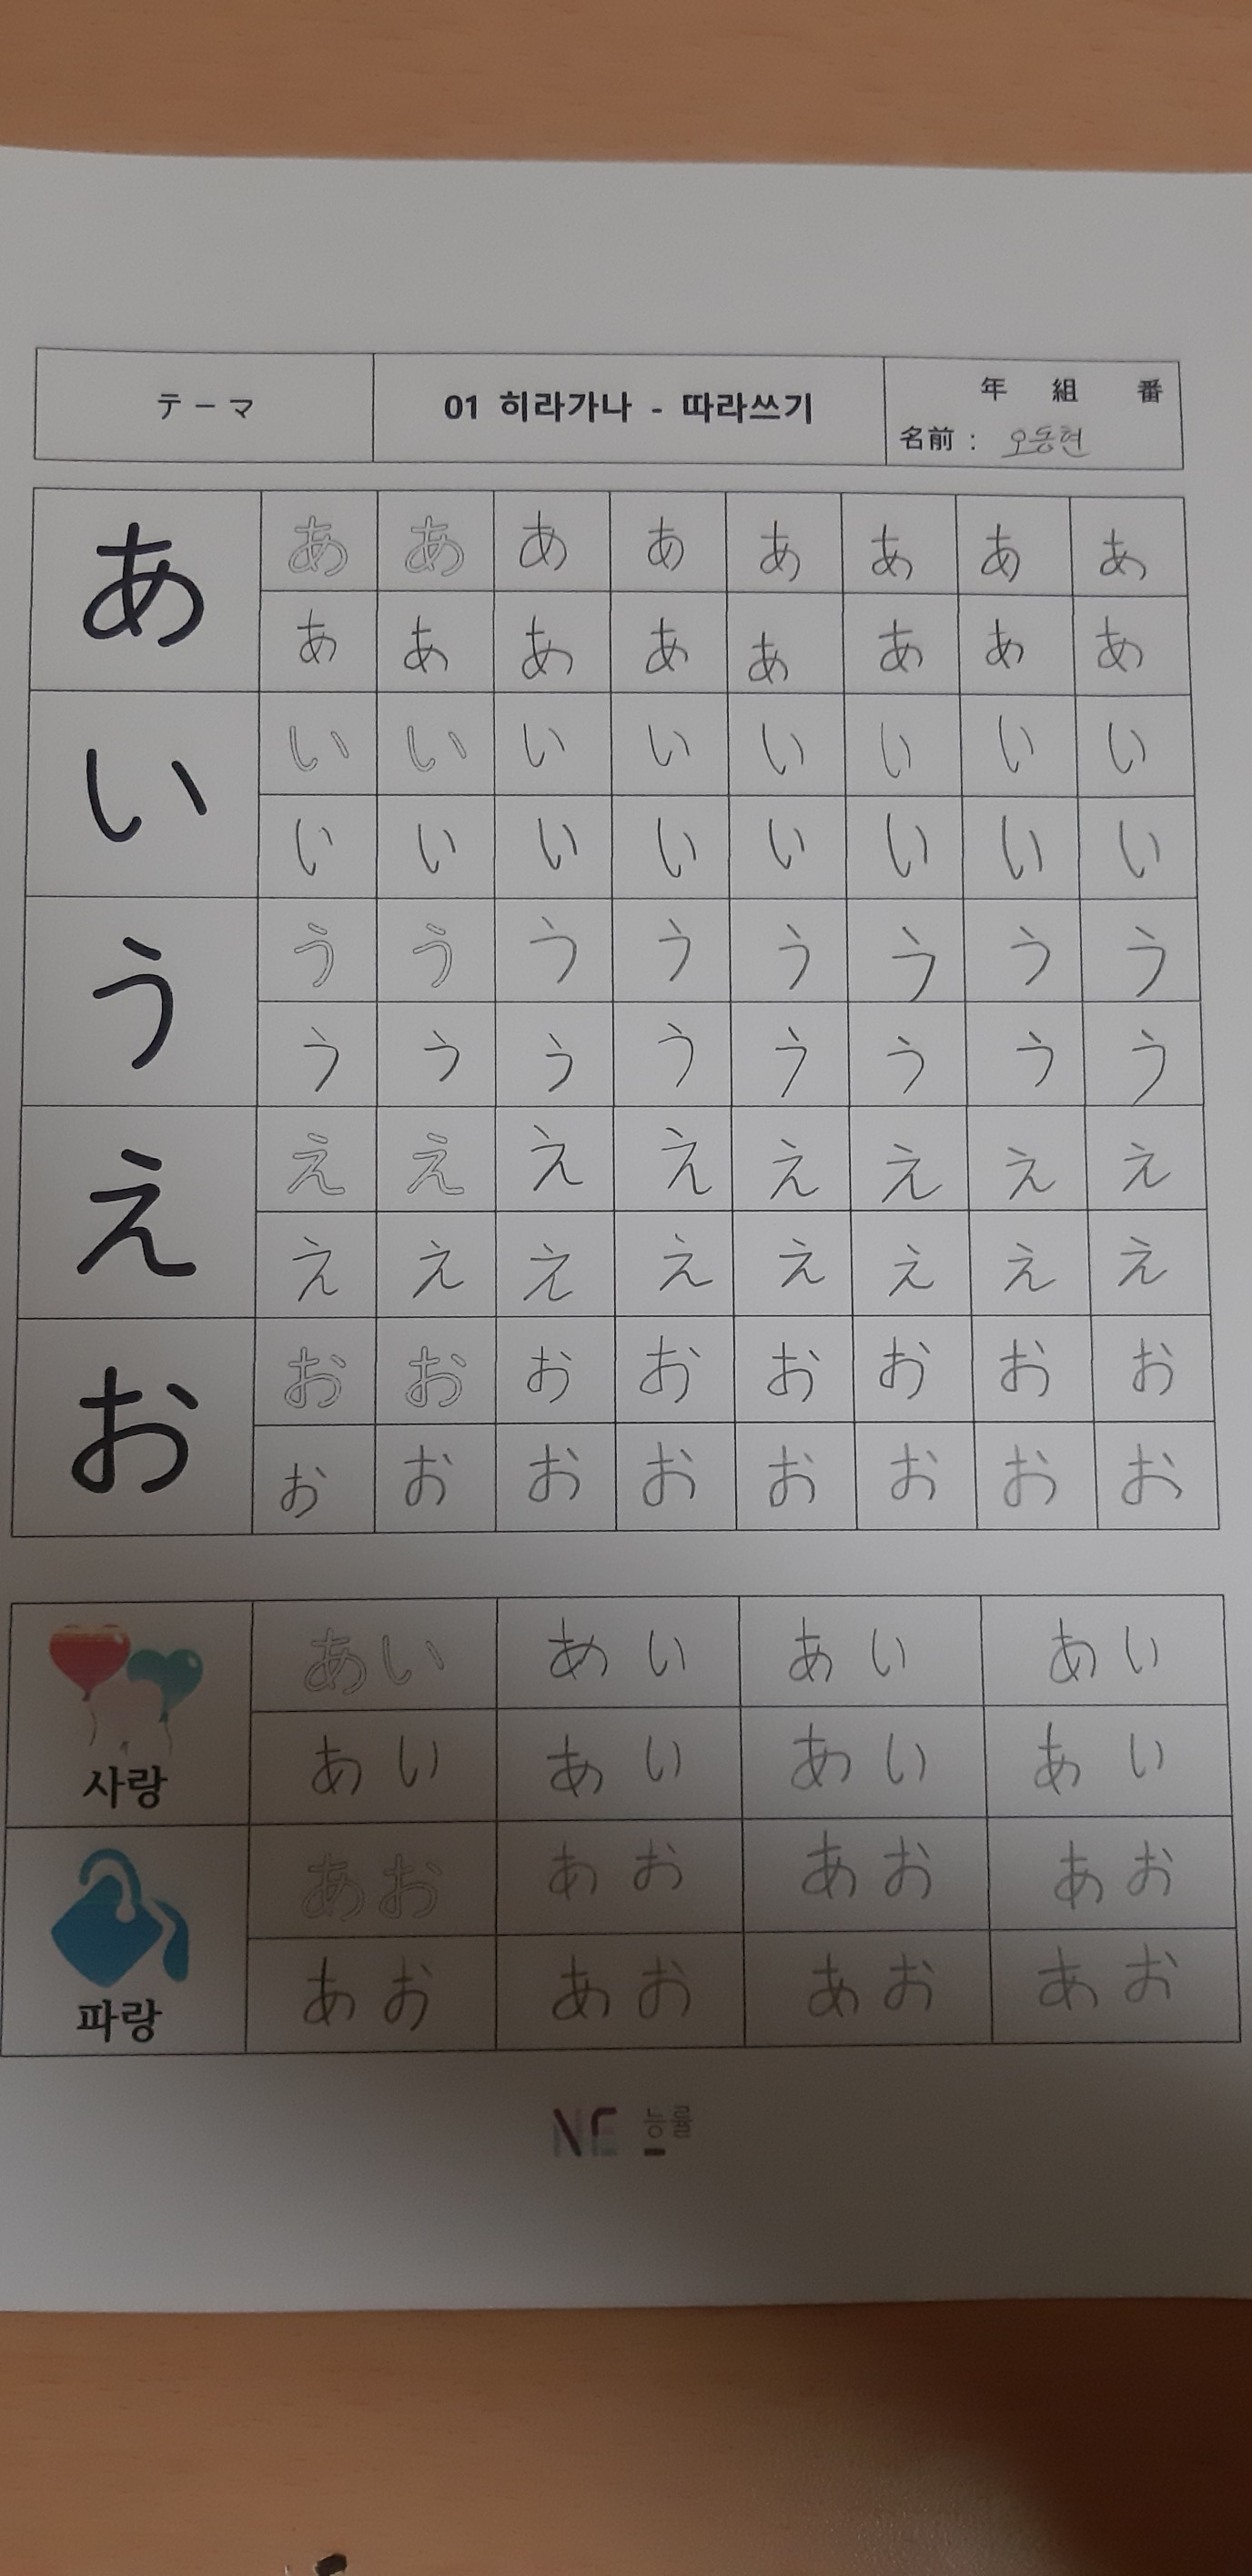 テーマ 01 히라가나 - 따라쓰기 年 組 番
名前 : 오동현
あ あ あ あ あ あ あ あ あ
あ あ あ あ あ あ あ あ
い い い い い い い い い
い い い い い い い い
う う う う う う う う う
う う う う う う う う
え え え え え え え え え
え え え え え え え え
お お お お お お お お お
お お お お お お お お
あい あい あい あい
사랑 あい あい あい あい
あお あお あお あお
파랑 あお あお あお あお
NE 능률